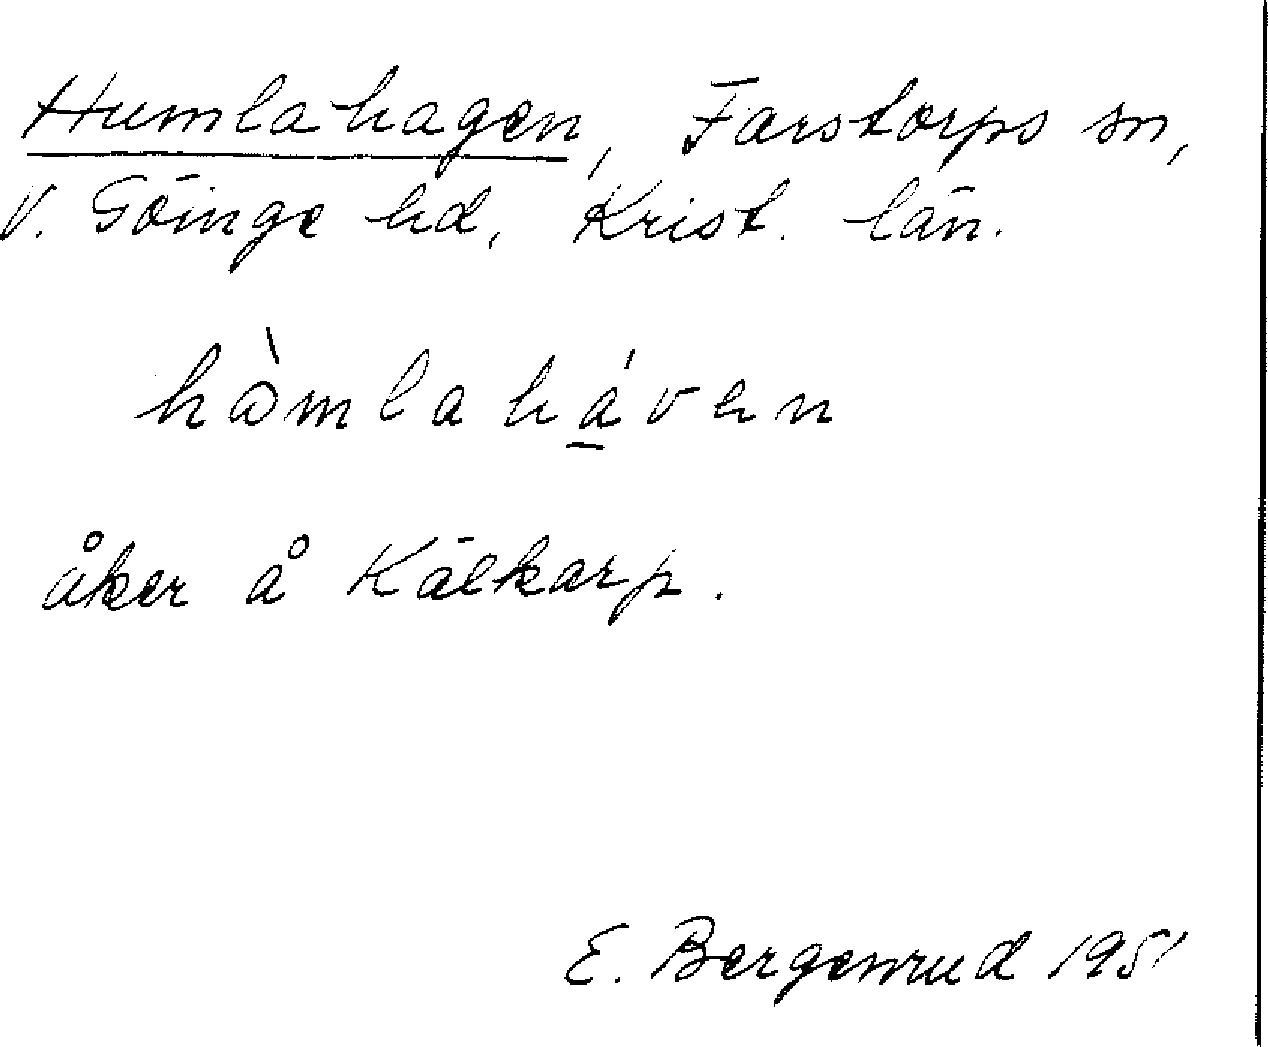 Humlahagen, Farstorps sn,
V. Göinge hd, Krist. län.
hòmlaháven
åker å Kälkarp.
E. Bergenrud 1951